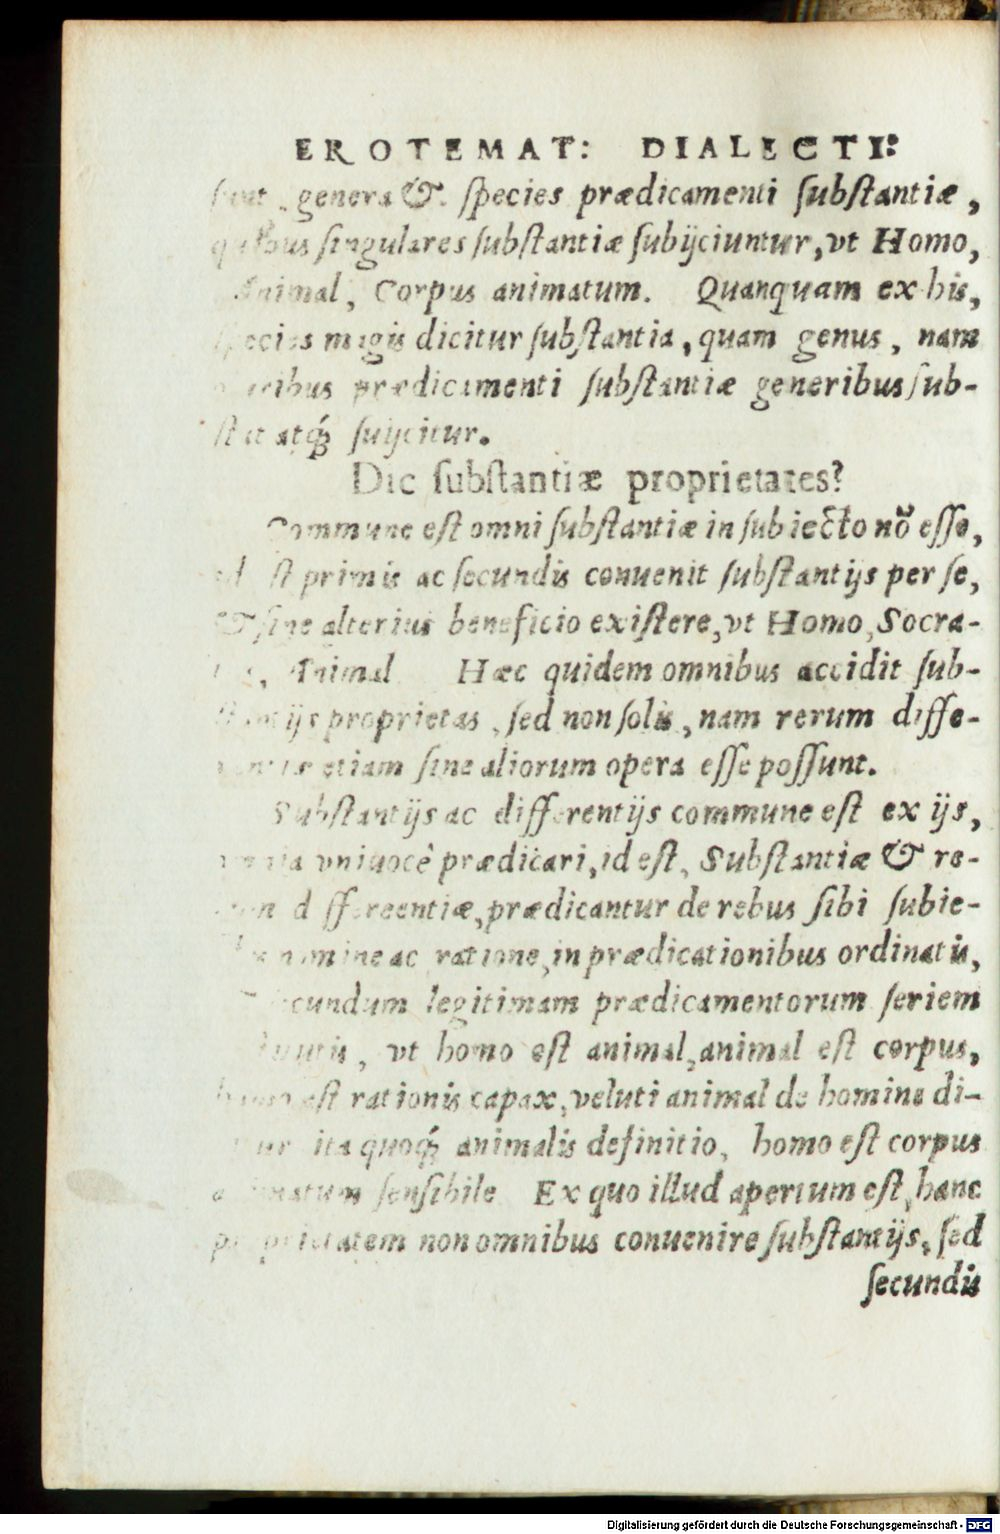 EROTEMAT: DIALECTI:
sunt, genera &. species prædicamenti substantiæ,
quibus singulares substantiæ subijciuntur, vt Homo,
Animal, Corpus animatum. Quanquam ex his,
species magis dicitur substantia, quam genus, nam
prædicamenti substantiæ generibus sub-
atq́ suijcitur.
Dic substantiæ proprietates?
Commune est omni substantiæ in subiecto nō esse,
primis ac secundis conuenit substantijs per se,
& sine alterius beneficio existere, vt Homo, Socra-
Animal Hæc quidem omnibus accidit sub-
stantijs proprietas, sed non solis, nam rerum diffe-
rentiæ etiam sine aliorum opera esse possunt.
Substantijs ac differentijs commune est ex ijs,
omnia vniuocè prædicari, id est, Substantiæ & re-
differeentiæ, prædicantur de rebus sibi subie-
nomine ac ratione, in prædicationibus ordinatis,
secundum legitimam prædicamentorum seriem
vt homo est animal, animal est corpus,
homo est rationis capax, veluti animal de homine di-
ita quoq́ animalis definitio, homo est corpus
animatum sensibile Ex quo illud apertum est, hanc
proprietatem non omnibus conuenire substantijs, sed
secundis
Digitalisierung gefördert durch die Deutsche Forschungsgemeinschaft - DFG